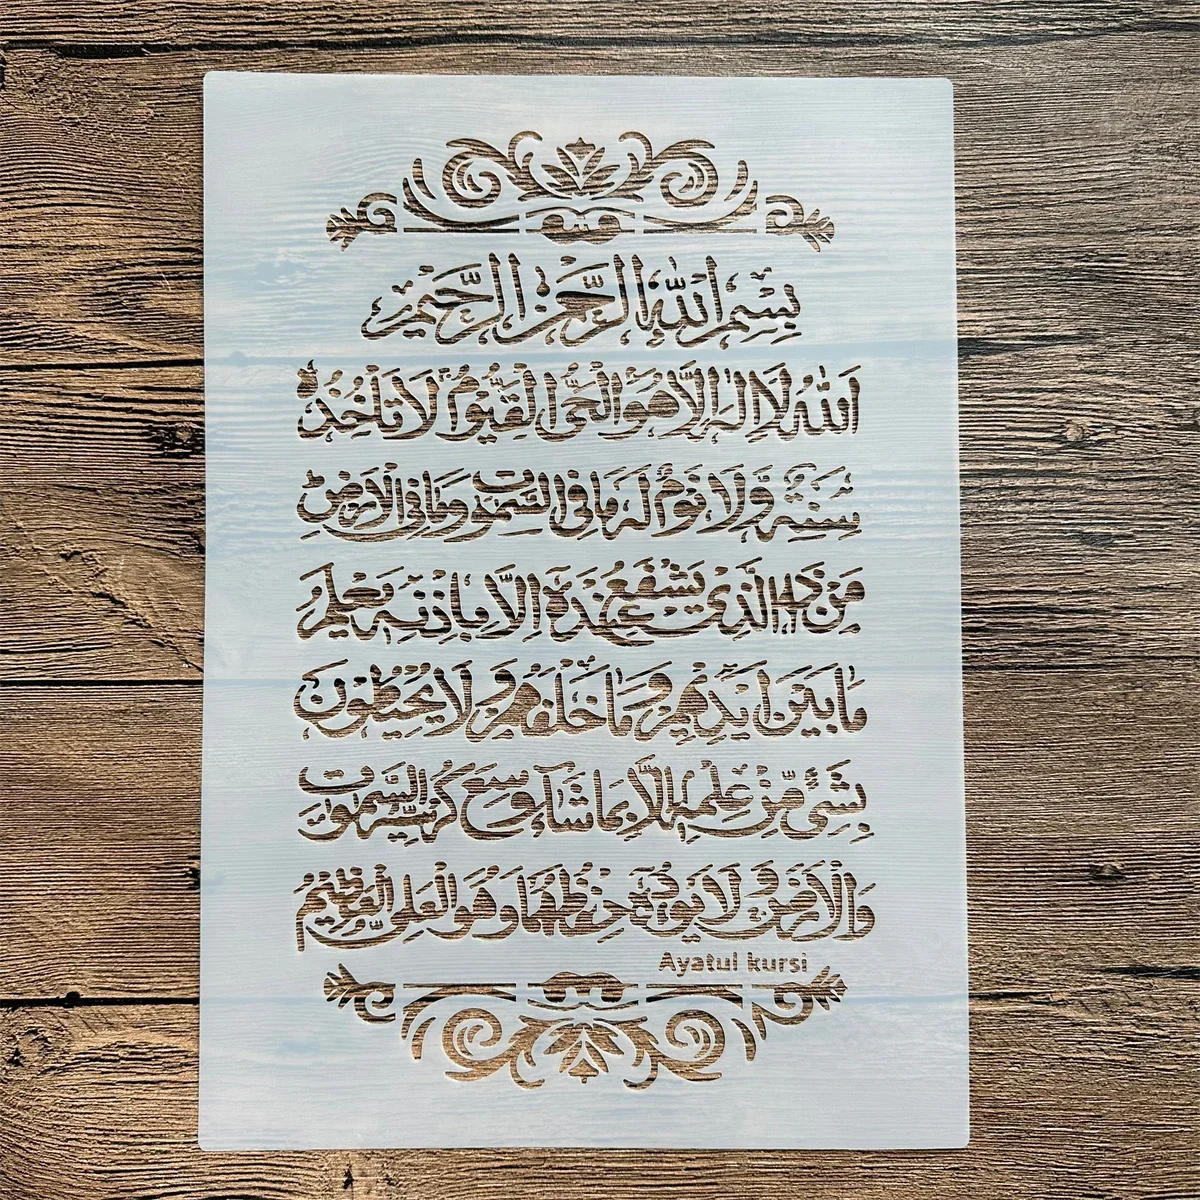 بِسْمِ اللّٰهِ الرَّحْمٰنِ الرَّحِيْمِ
اَللّٰهُ لَا اِلٰهَ اِلَّا هُوَ الْحَيُّ الْقَيُّوْمُ لَا تَاْخُذُهٗ
سِنَةٌ وَّلَا نَوْمٌ لَهٗ مَا فِي السَّمٰوٰتِ وَمَا فِي الْاَرْضِ
مَنْ ذَا الَّذِيْ يَشْفَعُ عِنْدَهٗ اِلَّا بِاِذْنِهٖ يَعْلَمُ
مَا بَيْنَ اَيْدِيْهِمْ وَمَا خَلْفَهُمْ وَلَا يُحِيْطُوْنَ
بِشَيْءٍ مِّنْ عِلْمِهٖ اِلَّا بِمَا شَآءَ وَسِعَ كُرْسِيُّهُ السَّمٰوٰتِ
وَالْاَرْضَ وَلَا يَـُٔوْدُهٗ حِفْظُهُمَا وَهُوَ الْعَلِيُّ الْعَظِيْمُ
Ayatul kursi